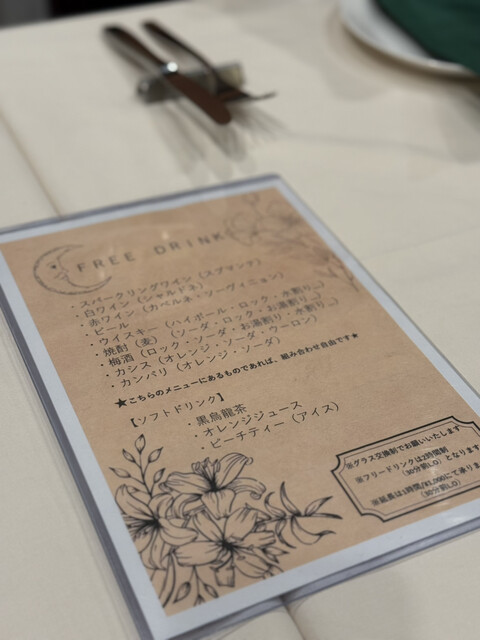 FREE DRINK
・スパークリングワイン（スプマンテ）
・白ワイン（シャルドネ）
・赤ワイン（カベルネ・ソーヴィニョン）
・ビール
・ウイスキー（ハイボール・ロック・水割り）
・焼酎（麦）（ソーダ・ロック・お湯割り・水割り）
・梅酒（ロック・ソーダ・お湯割り・水割り）
・カシス（オレンジ・ソーダ・ウーロン）
・カンパリ（オレンジ・ソーダ）
★こちらのメニューにあるものであれば、組み合わせ自由です★
【ソフトドリンク】
・黒烏龍茶
・オレンジジュース
・ピーチティー（アイス）
※グラス交換制でお願いいたします
※フリードリンクは2時間制
（30分前LO）となります
※延長は1時間/¥1,000にて承りま
（30分前LO）